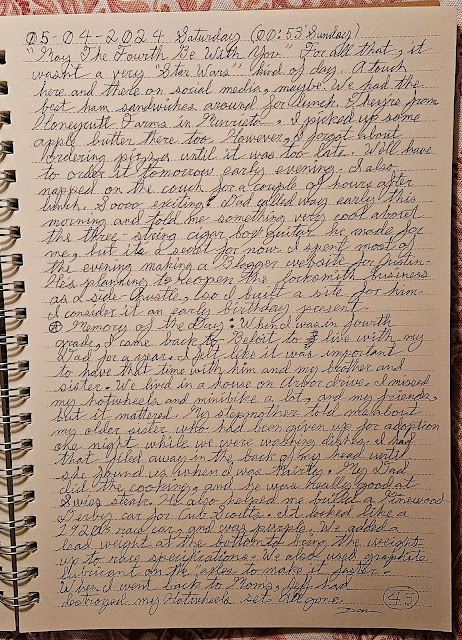 05-04-2024 Saturday (00:53 Sunday)
"May The Fourth Be With You." For all that, it
wasn't a very "Star Wars" kind of day. A touch
here and there on social media, maybe. We had the
best ham sandwiches around for lunch. They're from
Honeycutt Farms in Murrieta. I picked up some
apple butter there too. However, I forgot about
ordering pizza until it was too late. We'll have
to order it tomorrow early evening. I also
napped on the couch for a couple of hours after
lunch. Soooo exciting! Dad called way early this
morning and told me something very cool about
the three-string cigar box guitar he made for
me, but it's a secret for now. I spent most of
the evening making a Blogger website for Dustin.
He's planning to reopen the locksmith business
as a side-hustle, too. I built a site for him.
I consider it an early birthday present.
Memory of the Day: When I was in fourth
grade, I came back to Beloit to live with my
Dad for a year. I felt like it was important
to have that time with him and my brother and
sister. We lived in a house on Arbor drive. I missed
my hotwheels and minibike a lot, and my friends,
but it mattered. My stepmother told me about
my older sister who had been given up for adoption
one night while we were washing dishes. I had
that filed away in the back of my head until
she found us when I was thirty. My Dad
did the cooking, and he was really good at
Swiss steak. He also helped me build a Pinewood
Derby car for Cub Scouts. It looked like a
1920's race car, and was purple. We added a
lead weight at the bottom to bring the weight
up to race specifications. We also used graphite
lubricant on the axles to make it faster.
When I went back to Mom's, Jeff had
destroyed my Hotwheels set. All gone.
45